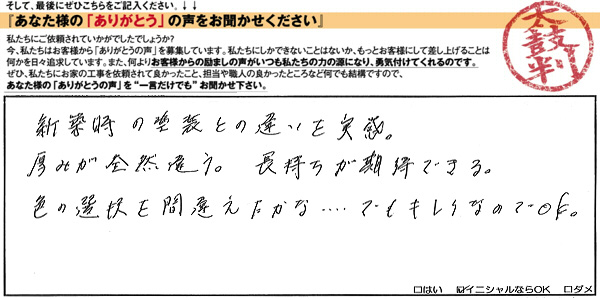 そして、最後にぜひこちらをご記入ください。↓↓
『あなた様の「ありがとう」の声をお聞かせください』
私たちにご依頼されていかがでしたでしょうか?
今、私たちはお客様から「ありがとうの声」を募集しています。私たちにしかできないことはないか、もっとお客様にして差し上げることは
何かを日々追求しています。また、何よりお客様からの励ましの声がいつも私たちの力の源になり、勇気付けてくれるのです。
ぜひ、私たちにお家の工事を依頼されて良かったこと、担当や職人の良かったところなど何でも結構ですので、
あなた様の「ありがとうの声」を“一言だけでも”お聞かせ下さい。
太鼓判
新築時の塗装との違いを実感。
厚みが全然違う。長持ちが期待できる。
色の選択を間違えたかな‥‥でもキレイなのでOK。
□はい ☑イニシャルならOK □ダメ